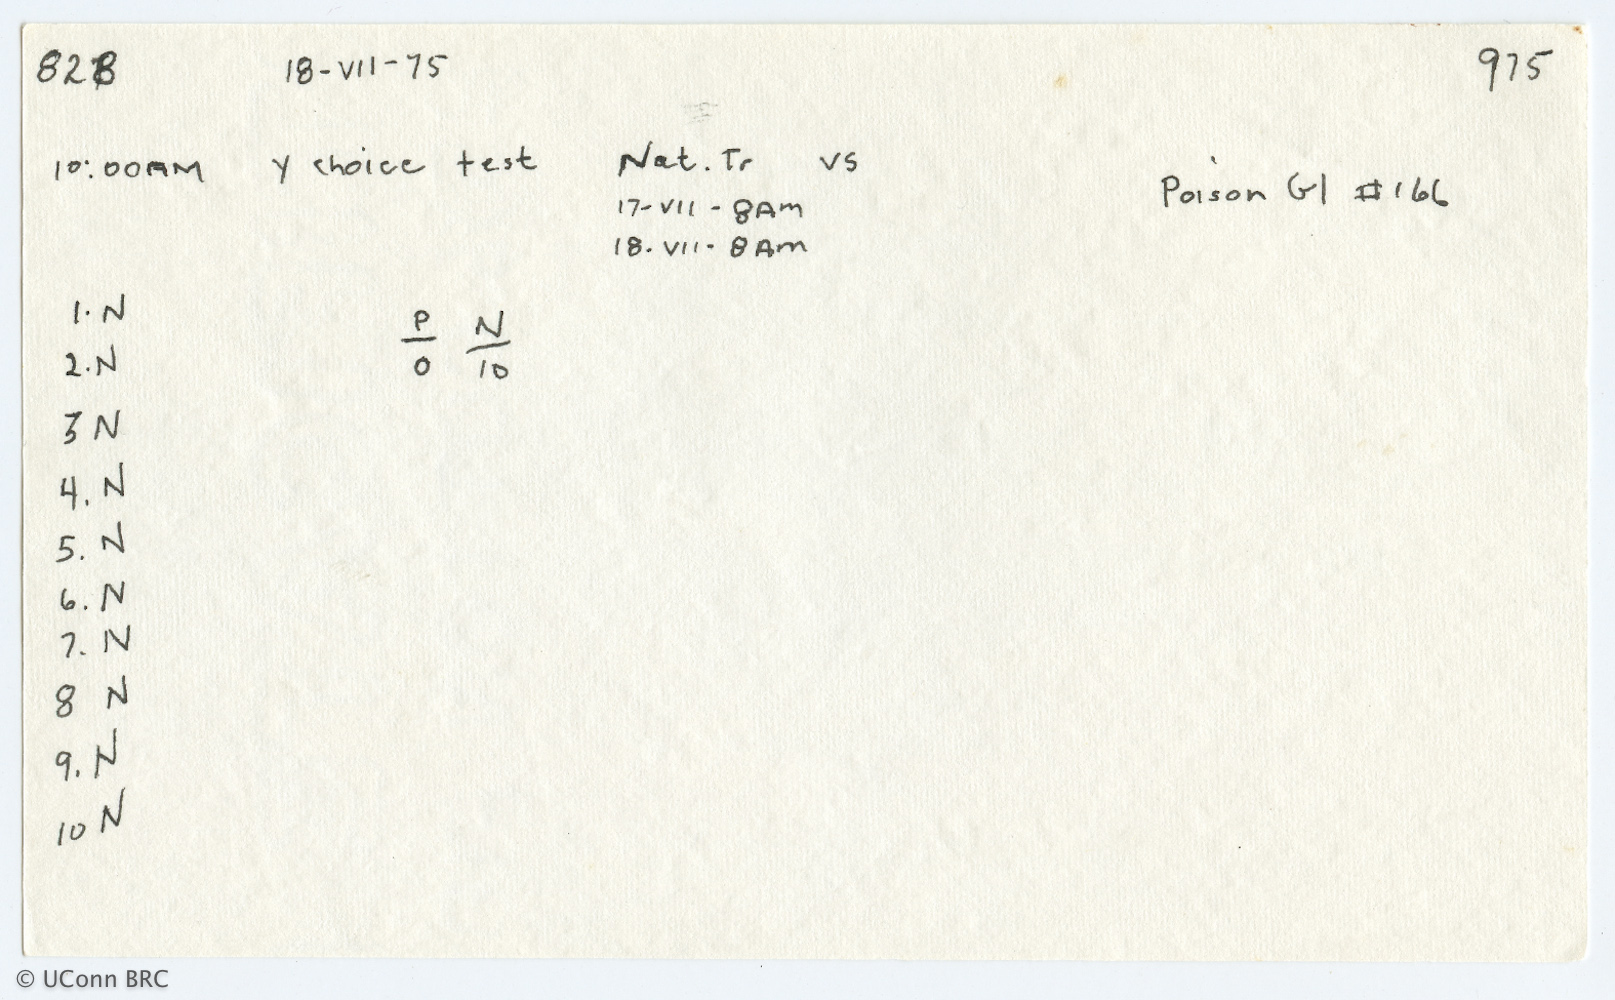 82B 18-VII-75 975
10:00AM Y choice test Nat. Tr vs Poison Gl #166
17-VII-8AM
18.VII-8AM
1. N
2. N
3 N
4. N
5. N
6. N
7. N
8 N
9. N
10 N
P N
0 10
© UConn BRC